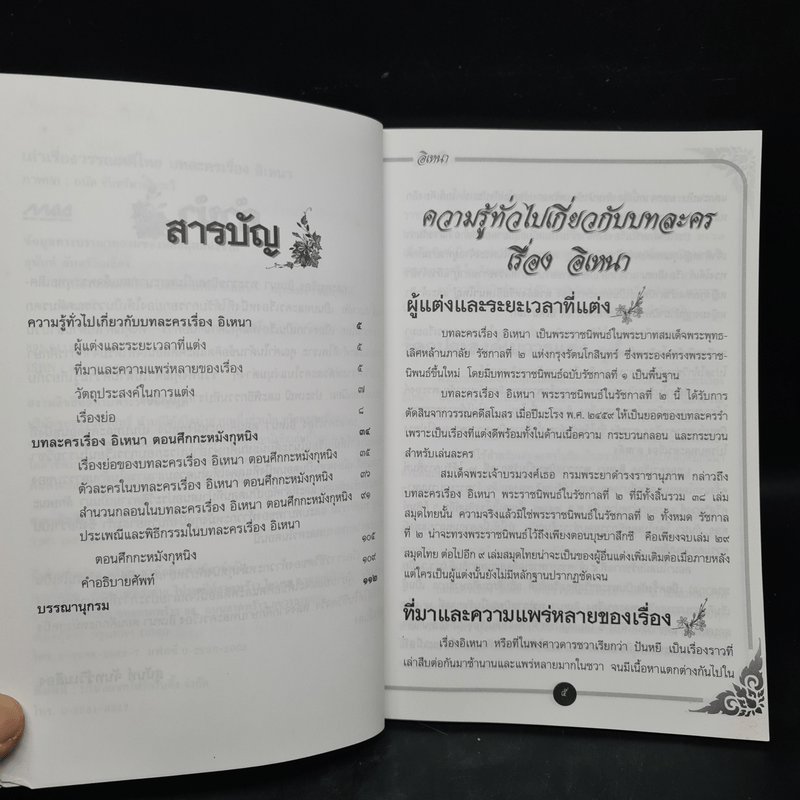 สารบัญ
ความรู้ทั่วไปเกี่ยวกับบทละครเรื่อง อิเหนา ๕
ผู้แต่งและระยะเวลาที่แต่ง ๕
ที่มาและความแพร่หลายของเรื่อง ๕
วัตถุประสงค์ในการแต่ง ๗
เรื่องย่อ ๘
บทละครเรื่อง อิเหนา ตอนศึกกะหมังกุหนิง ๓๔
เรื่องย่อของบทละครเรื่อง อิเหนา ตอนศึกกะหมังกุหนิง ๓๕
ตัวละครในบทละครเรื่อง อิเหนา ตอนศึกกะหมังกุหนิง ๓๖
สำนวนกลอนในบทละครเรื่อง อิเหนา ตอนศึกกะหมังกุหนิง ๙๑
ประเพณีและพิธีกรรมในบทละครเรื่อง อิเหนา
ตอนศึกกะหมังกุหนิง ๑๐๕
คำอธิบายศัพท์ ๑๐๙
บรรณานุกรม ๑๑๒
อิเหนา
ความรู้ทั่วไปเกี่ยวกับบทละคร
เรื่อง อิเหนา
ผู้แต่งและระยะเวลาที่แต่ง
บทละครเรื่อง อิเหนา เป็นพระราชนิพนธ์ในพระบาทสมเด็จพระพุทธ-
เลิศหล้านภาลัย รัชกาลที่ ๒ แห่งกรุงรัตนโกสินทร์ ซึ่งพระองค์ทรงพระราช-
นิพนธ์ขึ้นใหม่ โดยมีบทพระราชนิพนธ์ฉบับรัชกาลที่ ๑ เป็นพื้นฐาน
บทละครเรื่อง อิเหนา พระราชนิพนธ์ในรัชกาลที่ ๒ นี้ ได้รับการ
ตัดสินจากวรรณคดีสโมสร เมื่อปีมะโรง พ.ศ. ๒๔๕๙ ให้เป็นยอดของบทละครรำ
เพราะเป็นเรื่องที่แต่งดีพร้อมทั้งในด้านเนื้อความ กระบวนกลอน และกระบวน
สำหรับเล่นละคร
สมเด็จพระเจ้าบรมวงศ์เธอ กรมพระยาดำรงราชานุภาพ กล่าวถึง
บทละครเรื่อง อิเหนา พระราชนิพนธ์ในรัชกาลที่ ๒ ที่มีทั้งสิ้นรวม ๓๘ เล่ม
สมุดไทยนั้น ความจริงแล้วมิใช่พระราชนิพนธ์ในรัชกาลที่ ๒ ทั้งหมด รัชกาล
ที่ ๒ น่าจะทรงพระราชนิพนธ์ไว้ถึงเพียงตอนบุษบาสึกชี คือเพียงจบเล่ม ๒๙
สมุดไทย ต่อไปอีก ๙ เล่มสมุดไทยน่าจะเป็นของผู้อื่นแต่งเพิ่มเติมต่อเมื่อภายหลัง
แต่ใครเป็นผู้แต่งนั้นยังไม่มีหลักฐานปรากฏชัดเจน
ที่มาและความแพร่หลายของเรื่อง
เรื่องอิเหนา หรือที่ในพงศาวดารชวาเรียกว่า ปันหยี เป็นเรื่องราวที่
เล่าสืบต่อกันมาช้านานและแพร่หลายมากในชวา จนมีเนื้อหาแตกต่างกันไปใน
๕